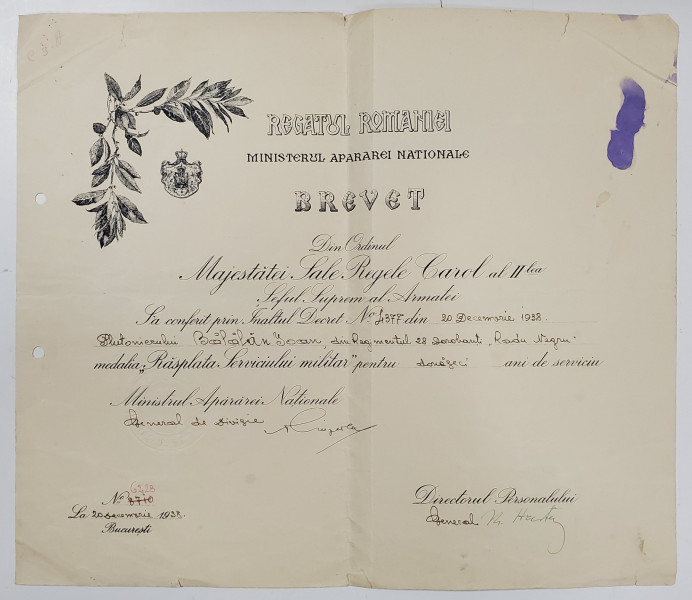 REGATUL ROMANIEI
MINISTERUL APARAREI NATIONALE
BREVET
Din Ordinul
Majestăței Sale Regele Carol al II lea
Șeful Suprem al Armatei
S'a conferit prin Înaltul Decret No 4377 din 20 Decemvrie 1938.
Plutonerului Bălălău Ioan, din Regimentul 28 Dorobanți "Radu Negru"
medalia "Răsplata Serviciului militar" pentru douăzeci ani de serviciu
Ministrul Apărărei Naționale
General de divizie
6228
No 3710
La 20 Decemvrie 1938.
București
Directorul Personalului
General